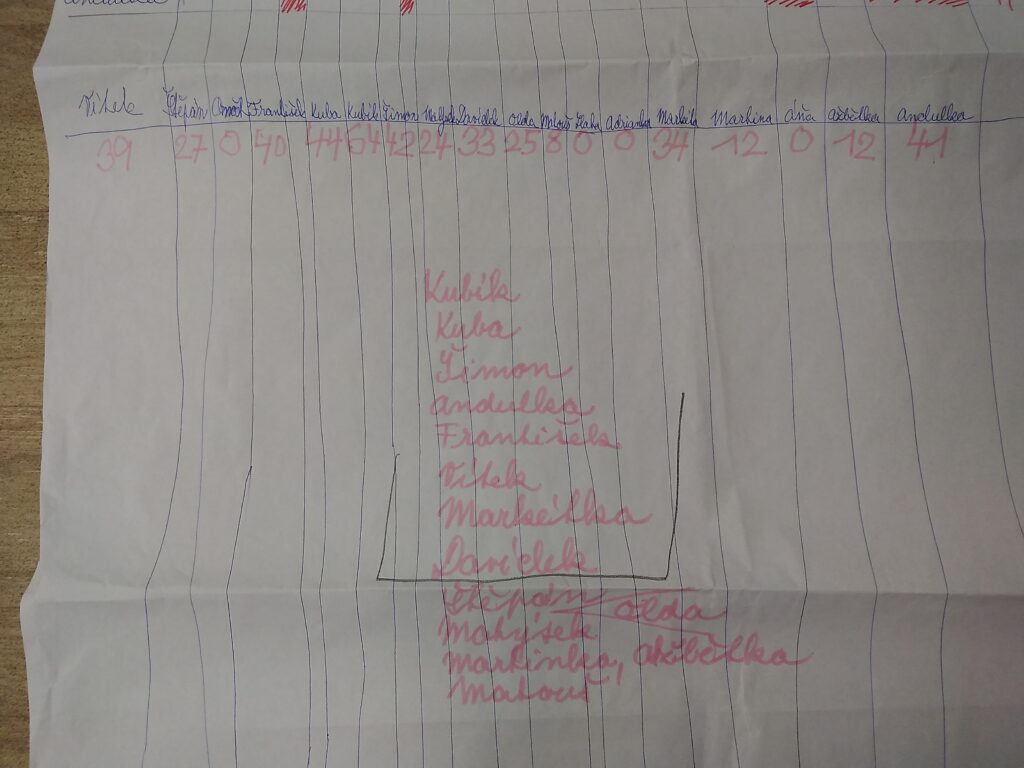 Vítek Štěpán František Kuba Kubík Šimon Davídek Olda Adrianka Markétka Martina Áňa Alžbětka Andulka
39 27 0 40 44 64 42 27 33 25 8 0 0 34 12 0 12 41
Kubík
Kuba
Šimon
Andulka
František
Vítek
Markétka
Davídek
Štěpán Olda
Matýsek
Martinka, Alžbětka
Matouš